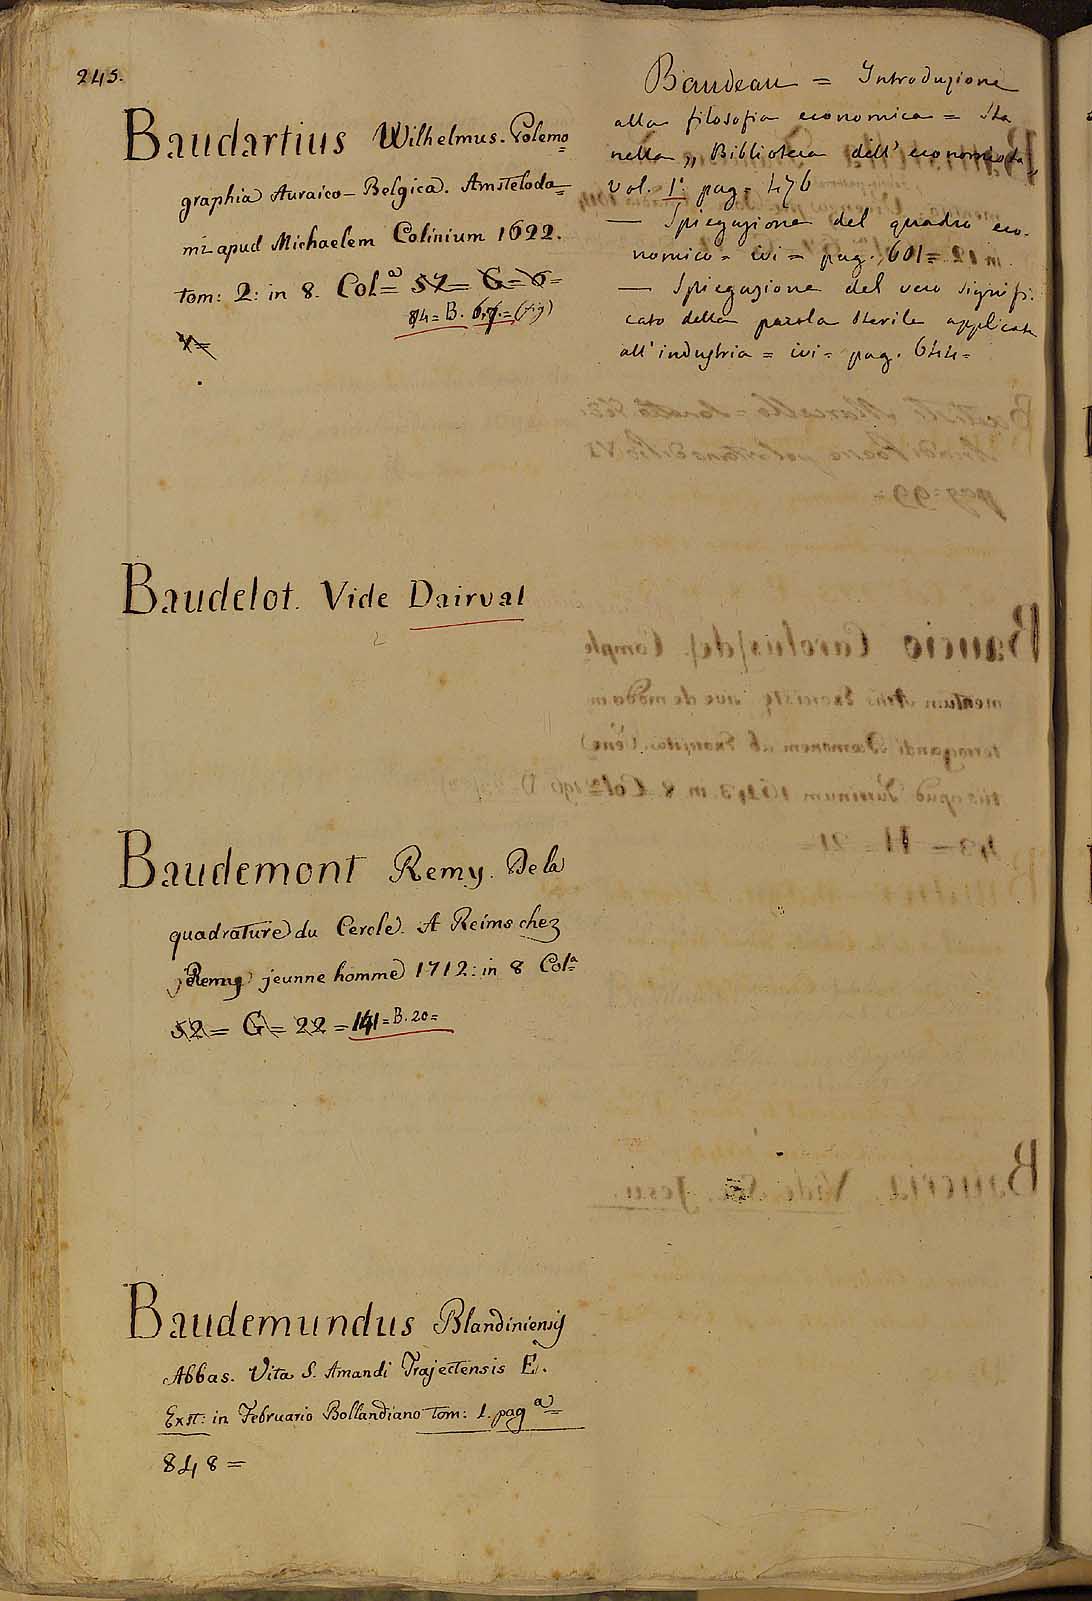 245.
Baudartius Wilhelmus. Polemo=
graphia Auraico-Belgica. Amsteloda-
mi apud Michaelem Colinium 1622.
tom: 2: in 8. Col=a 52= G= 6=
84= B. 6.7.= (fig)
7=
Baudelot. Vide Dairval
Baudemont Remy. De la
quadrature du Cercle. A Reims chez
Remy jeunne homme 1712: in 8 Col=a
52= G= 22 = 141= B. 20=
Baudemundus Blandiniensis
Abbas. Vita S. Amandi Trajectensis E.
Exst: in Februario Bollandiano tom: 1. pag a=
848=
Baudeau = Introduzione
alla filosofia economica = Sta
nella „ Biblioteca dell' economista „
vol. 1° pag. 476
— Spiegazione del quadro eco-
nomico = ivi = pag. 601=
— Spiegazione del vero signifi-
cato della parola sterile applicata
all' industria = ivi = pag. 644=